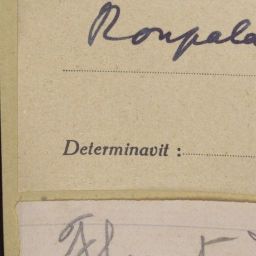 Roupala
Determinavit :